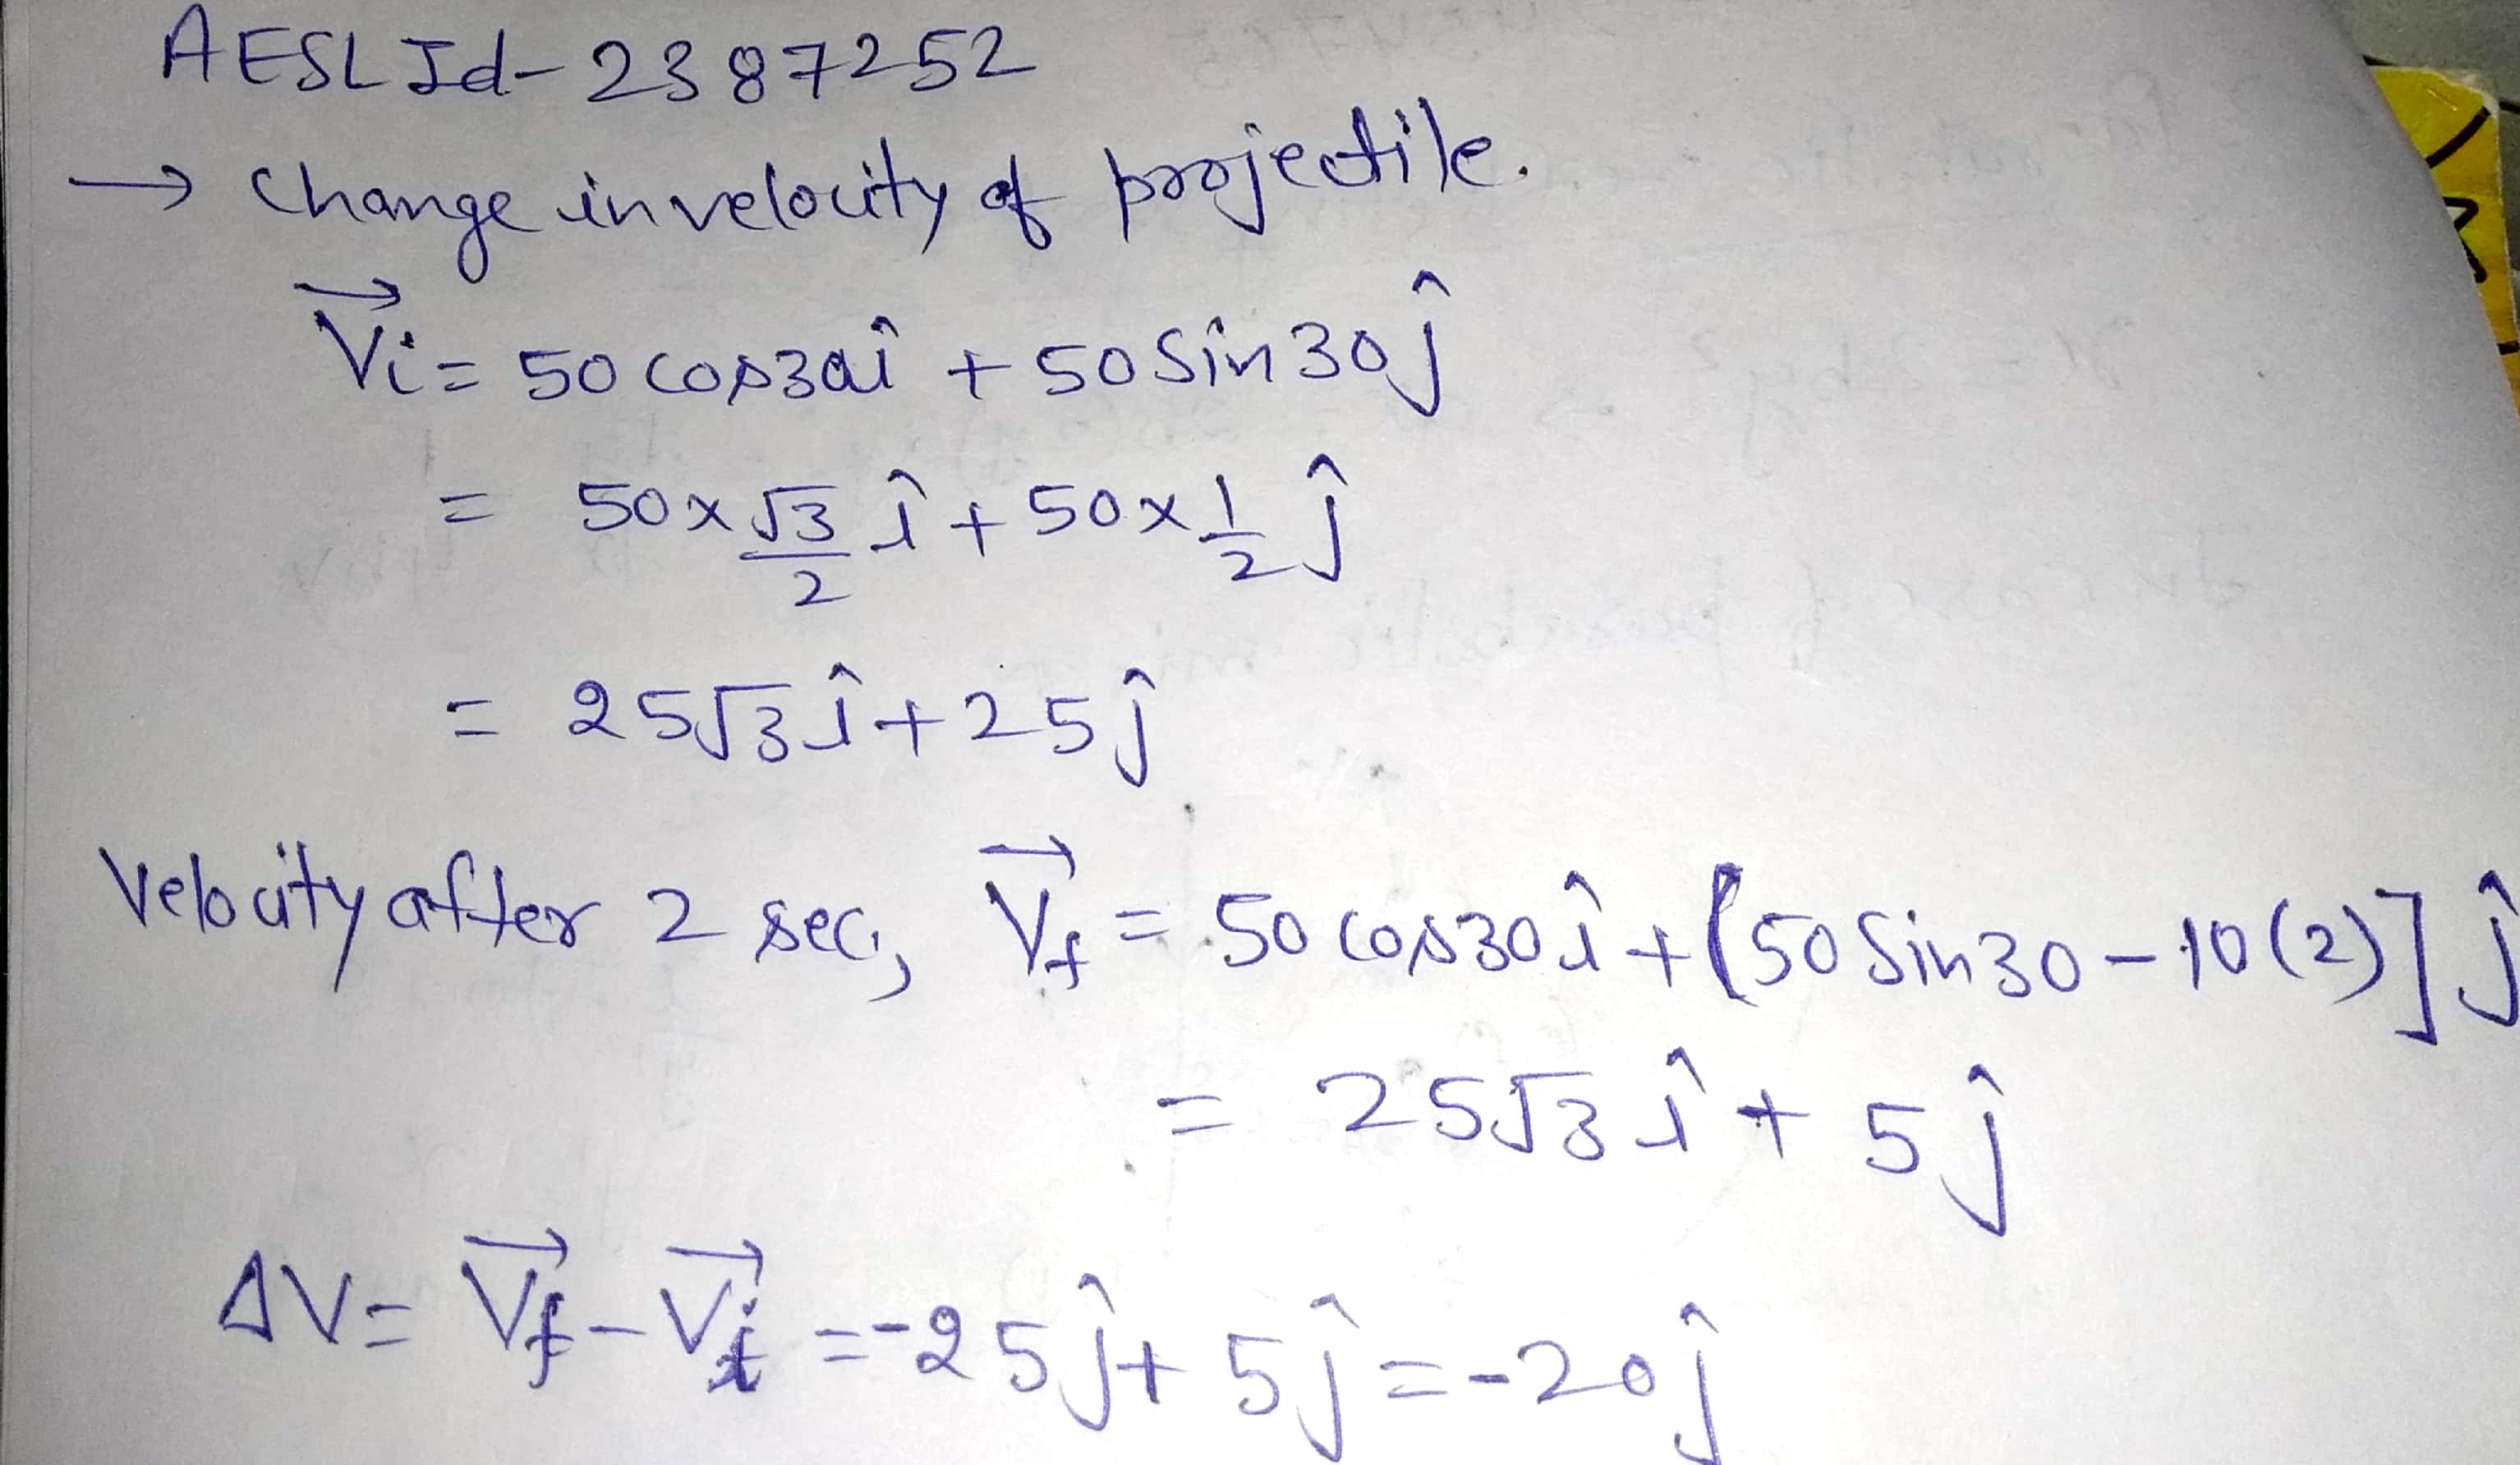 AESL Id- 2387252
→ Change in velocity of projectile.
V⃗i = 50 cos30î + 50 Sin 30ĵ
= 50 × √3/2 î + 50 × 1/2 ĵ
= 25√3 î + 25 ĵ
Velocity after 2 sec, V⃗f = 50 cos30 î + [50 Sin30 - 10(2)] ĵ
= 25√3 î + 5 ĵ
ΔV = V⃗f - V⃗i = -25 ĵ + 5 ĵ = -20 ĵ